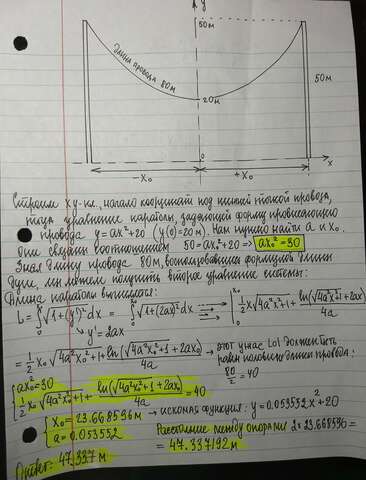 y
50м
Длина провода 80м
50м
20м
0
x
-x₀
+x₀
Строим xy-пл., начало координат под нижней точкой провода,
тогда уравнение параболы, задающей форму провисшего
провода y=ax²+20 (y(0)=20м). Нам нужно найти a и x₀.
Они связаны соотношением 50=ax₀²+20 => ax₀²=30
Зная длину провода 80м, воспользовавшись формулой длины
дуги, мы можем получить второе уравнение системы:
Длина параболы вычисляется:
L=∫√1+(y')² dx = ∫√1+(2ax)² dx = |½x√4a²x²+1 + ln(√4a²x²+1+2ax)/4a|
y'=2ax
=½x₀√4a²x₀²+1 + ln(√4a²x₀²+1+2ax₀)/4a → этот у нас L должен быть
равен половине длины провода:
80/2=40
{ax₀²=30
½x₀√4a²x₀²+1 + ln(√4a²x₀²+1+2ax₀)/4a =40
{x₀=23.668596м → искомая функция: y=0.053552x²+20
a=0.053552
Расстояние между опорами d=23.668596
=47.337192м
Ответ: 47.337м